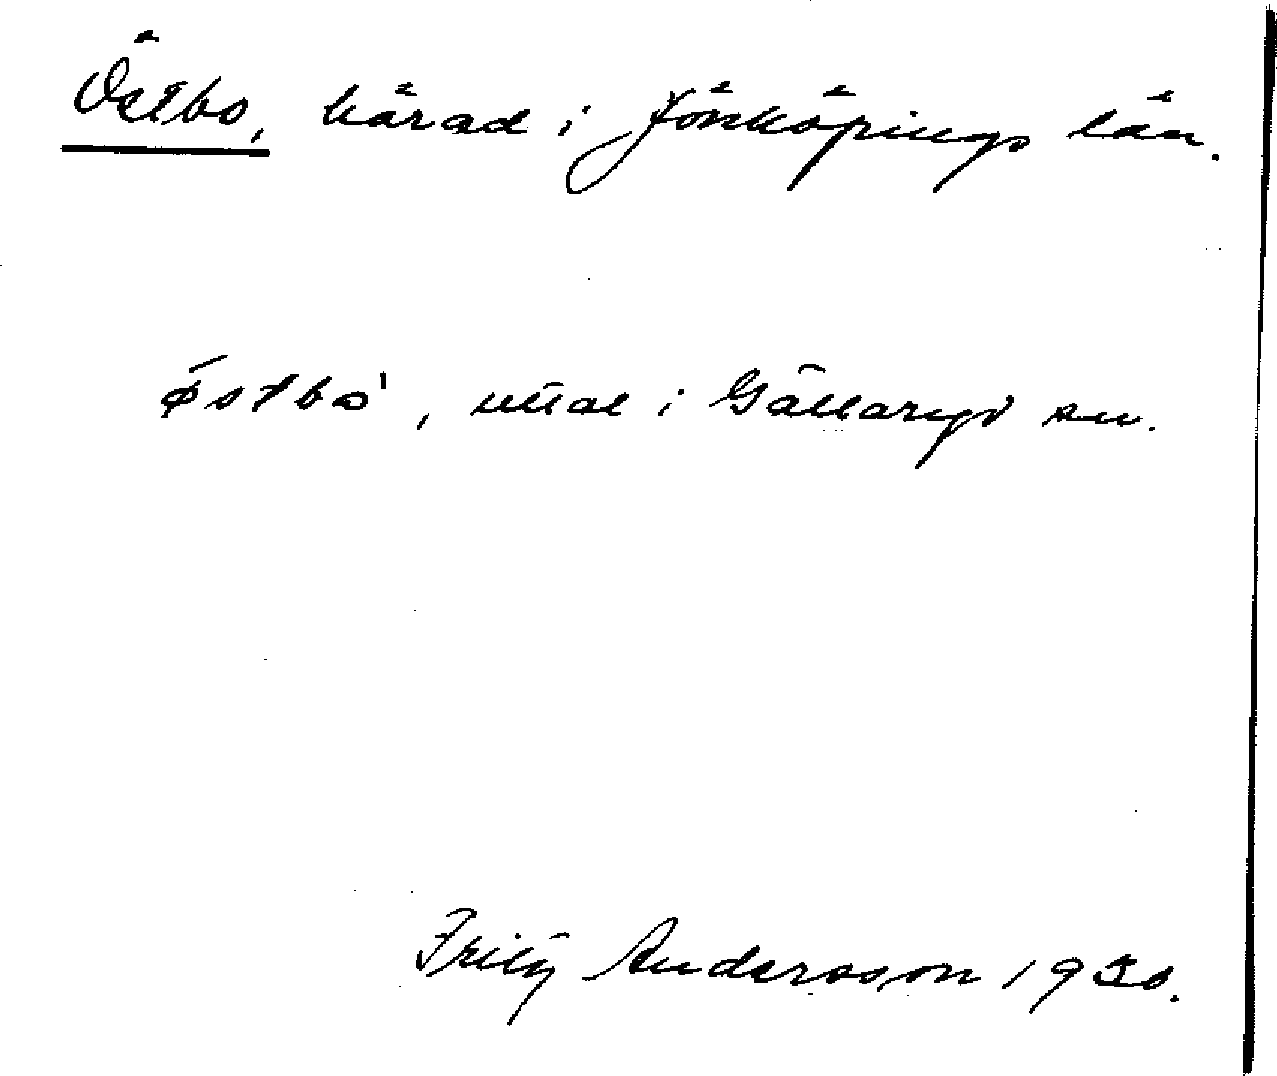 Östbo, härad i Jönköpings län.
i Gällaryd sn.
Fritz Andersson 1930.